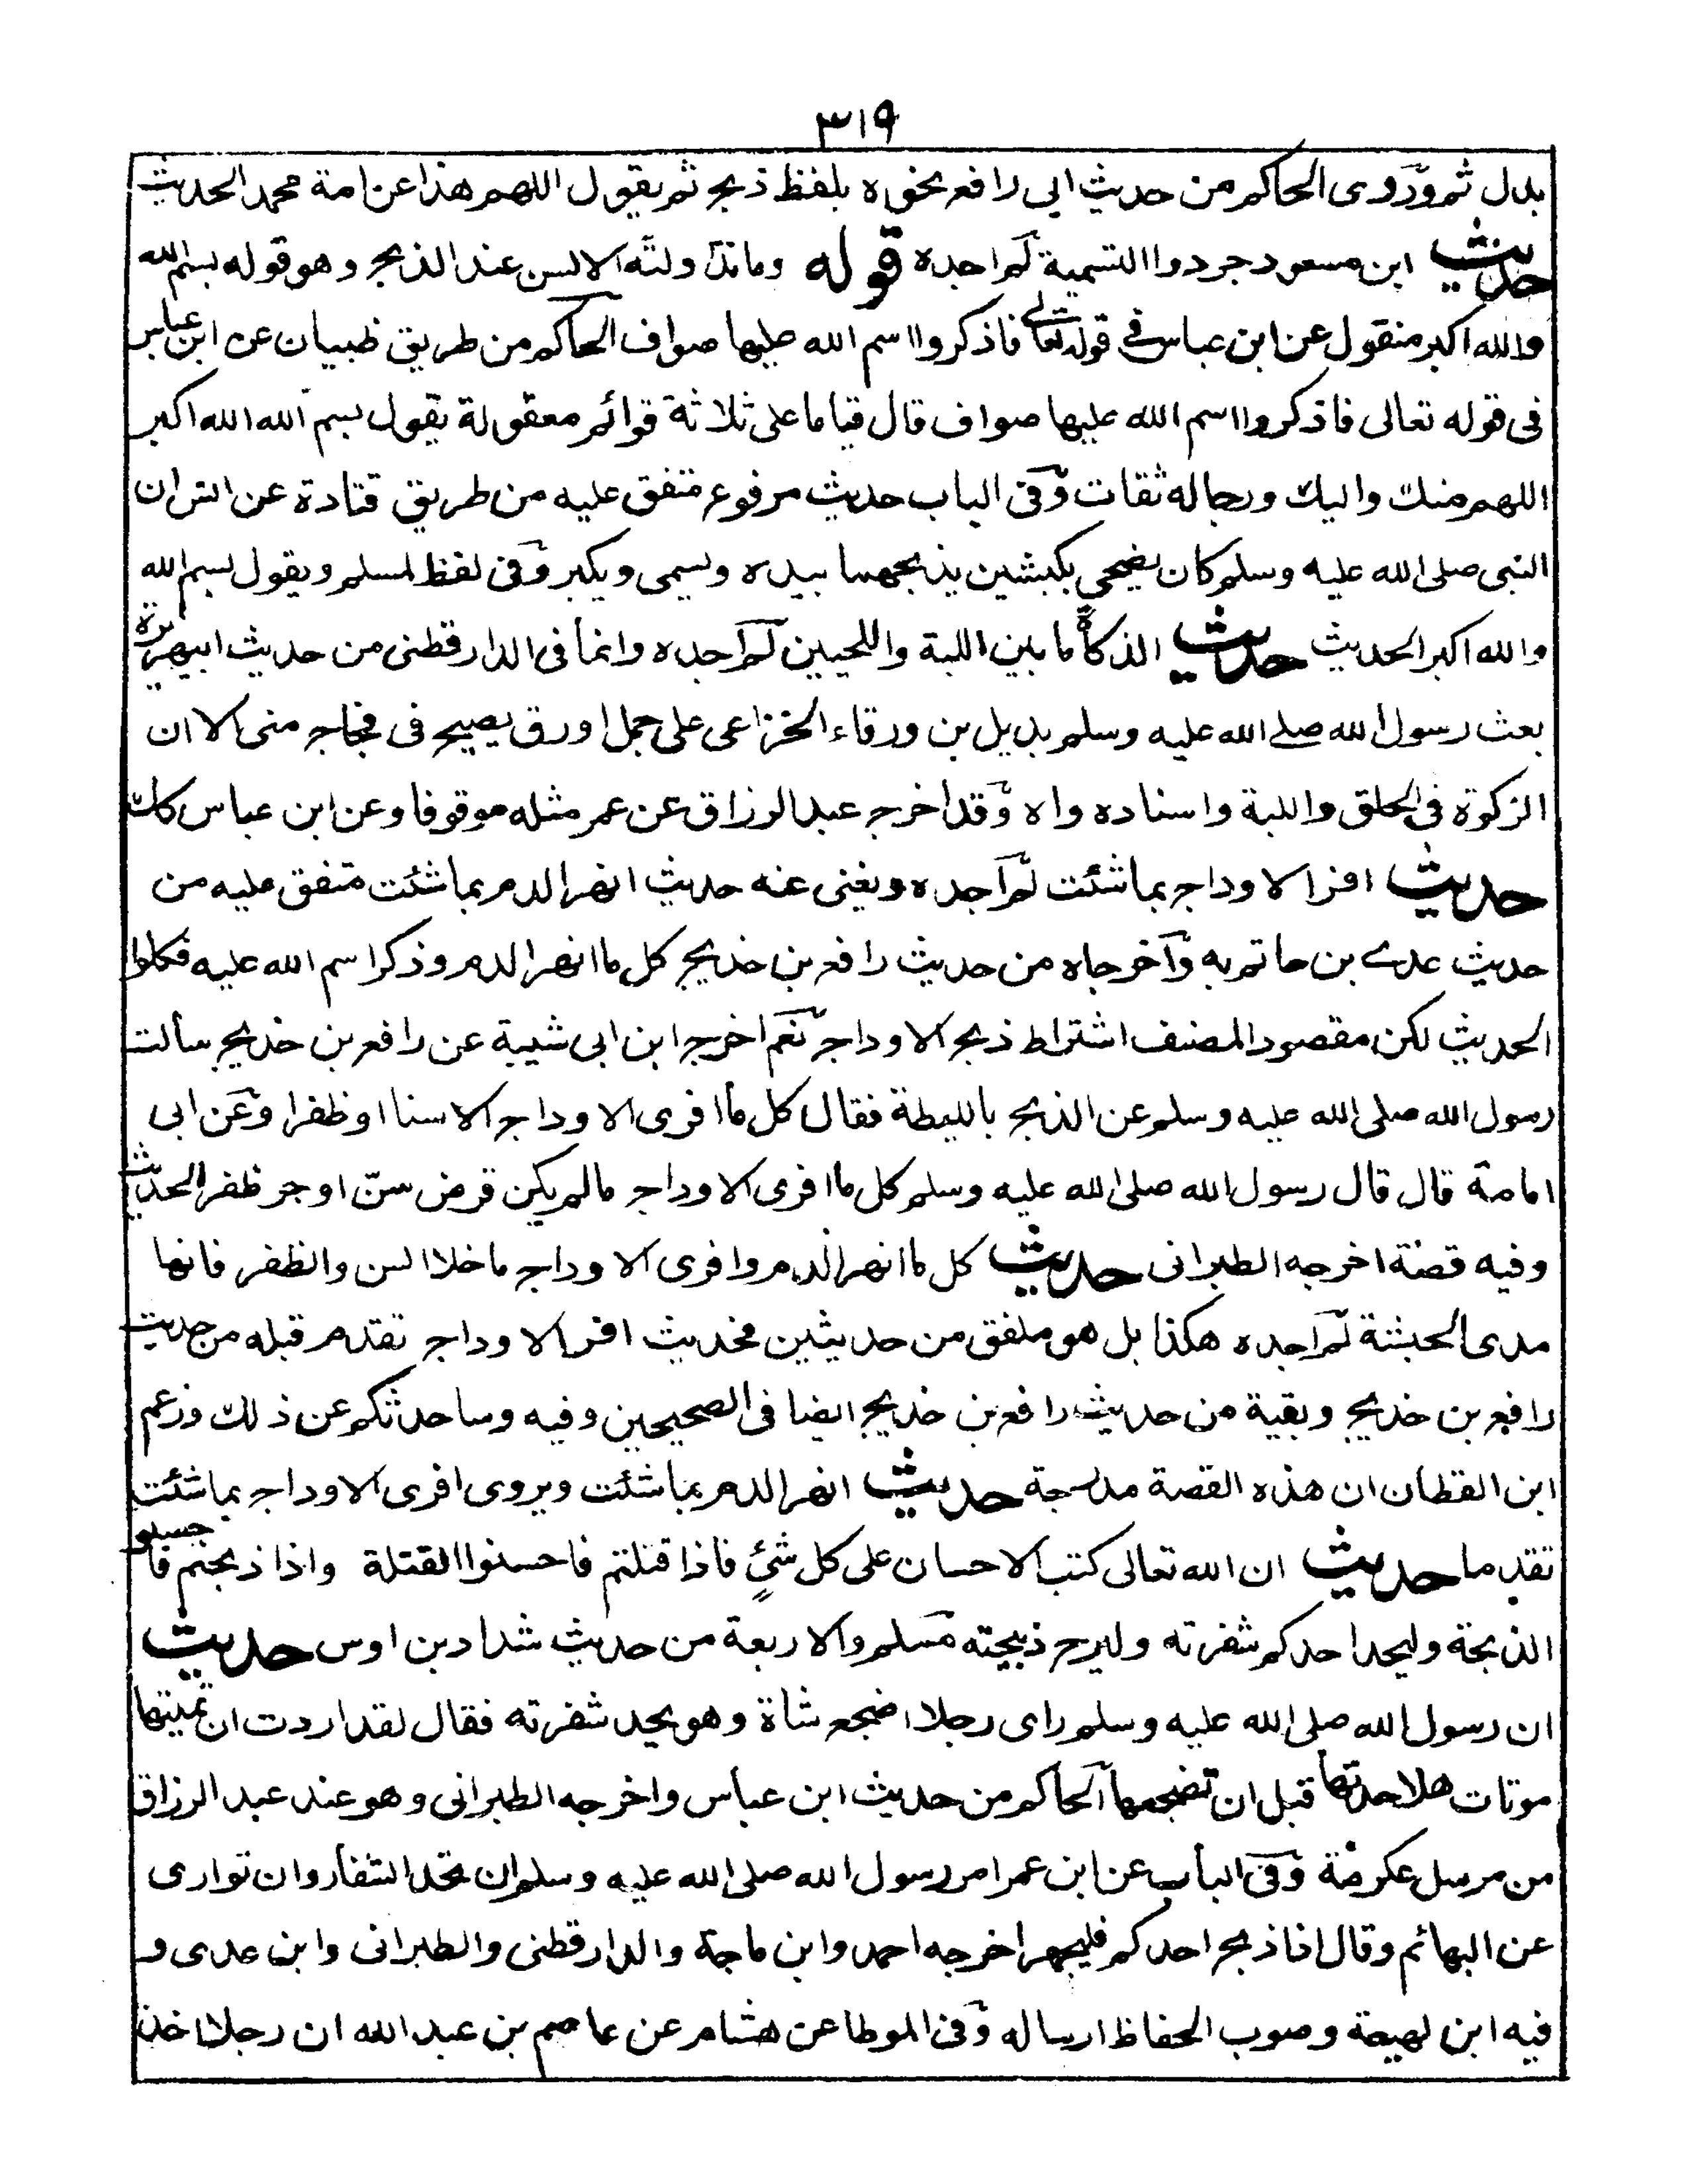 ٣١٩
بدل ثم وروى الحاكم من حديث ابى رافع نحوه بلفظ ذبح ثم يقول اللهم هذا عن امة محمد الحديث
حديث ابن مسعود جردوا التسمية لم اجده قوله وما تداولته الالسن عند الذبح وهو قوله بسم الله
والله اكبر منقول عن ابن عباس فى قوله تعالى فاذكروا اسم الله عليها صواف الحاكم من طريق ظبيان عن ابن عباس
فى قوله تعالى فاذكروا اسم الله عليها صواف قال قياما على ثلاثة قوائم معقولة يقول بسم الله الله اكبر
اللهم منك واليك ورجاله ثقات وفى الباب حديث مرفوع متفق عليه من طريق قتادة عن انس ان
النبى صلى الله عليه وسلم كان يضحى بكبشين يذبحهما بيده ويسمى ويكبر وفى لفظ لمسلم ويقول بسم الله
والله اكبر الحديث حديث الذكاة ما بين اللبة واللحيين لم اجده وانما فى الدارقطنى من حديث ابيهريرة
بعث رسول الله صلى الله عليه وسلم بديل بن ورقاء الخزاعى على جمل اورق يصيح فى فجاج منى الا ان
الزكوة فى الحلق واللبة واسناده واه وقد اخرجه عبد الرزاق عن عمر مثله موقوفا وعن ابن عباس كذلك
حديث افر الاوداج بما شئت لم اجده ويغنى عنه حديث انهر الدم بما شئت متفق عليه من
حديث عدى بن حاتم به واخرجاه من حديث رافع بن خديج كل ما انهر الدم وذكر اسم الله عليه فكلوا
الحديث لكن مقصود المصنف اشتراط ذبح الاوداج نعم اخرج ابن ابى شيبة عن رافع بن خديج سألت
رسول الله صلى الله عليه وسلم عن الذبح بالليطة فقال كل ما افرى الاوداج الا سنا او ظفرا وعن ابى
امامة قال قال رسول الله صلى الله عليه وسلم كل ما افرى الاوداج مالم يكن قرض سنّ او جز ظفر الحديث
وفيه قصة اخرجه الطبرانى حديث كل ما انهر الدم وافرى الاوداج ما خلا السن والظفر فانها
مدى الحبشة لم اجده هكذا بل هو ملفق من حديثين فحديث افر الاوداج تقدم قبله من حديث
رافع بن خديج وبقية من حديث رافع بن خديج ايضا فى الصحيحين وفيه وساحدثكم عن ذلك وزعم
ابن القطان ان هذه القصة مدرجة حديث انهر الدم بما شئت ويروى افرى الاوداج بما شئت
تقدما حديث ان الله تعالى كتب الاحسان على كل شئٍ فاذا قتلتم فاحسنوا القتلة واذا ذبحتم فاحسنو
الذبحة وليحد احدكم شفرته وليرح ذبيحته مسلم والاربعة من حديث شداد بن اوس حديث
ان رسول الله صلى الله عليه وسلم راى رجلا اضجع شاة وهو يحد شفرته فقال لقد اردت ان تميتها
موتات هلا حددتها قبل ان تضجعها الحاكم من حديث ابن عباس واخرجه الطبرانى وهو عند عبد الرزاق
من مرسل عكرمة وفى الباب عن ابن عمر امر رسول الله صلى الله عليه وسلم ان تحد الشفار وان توارى
عن البهائم وقال اذا ذبح احدكم فليجهز اخرجه احمد وابن ماجة والدارقطنى والطبرانى وابن عدى و
فيه ابن لهيعة وصوب الحفاظ ارساله وفى الموطا عن هشام عن عاصم بن عبد الله ان رجلا اخذ